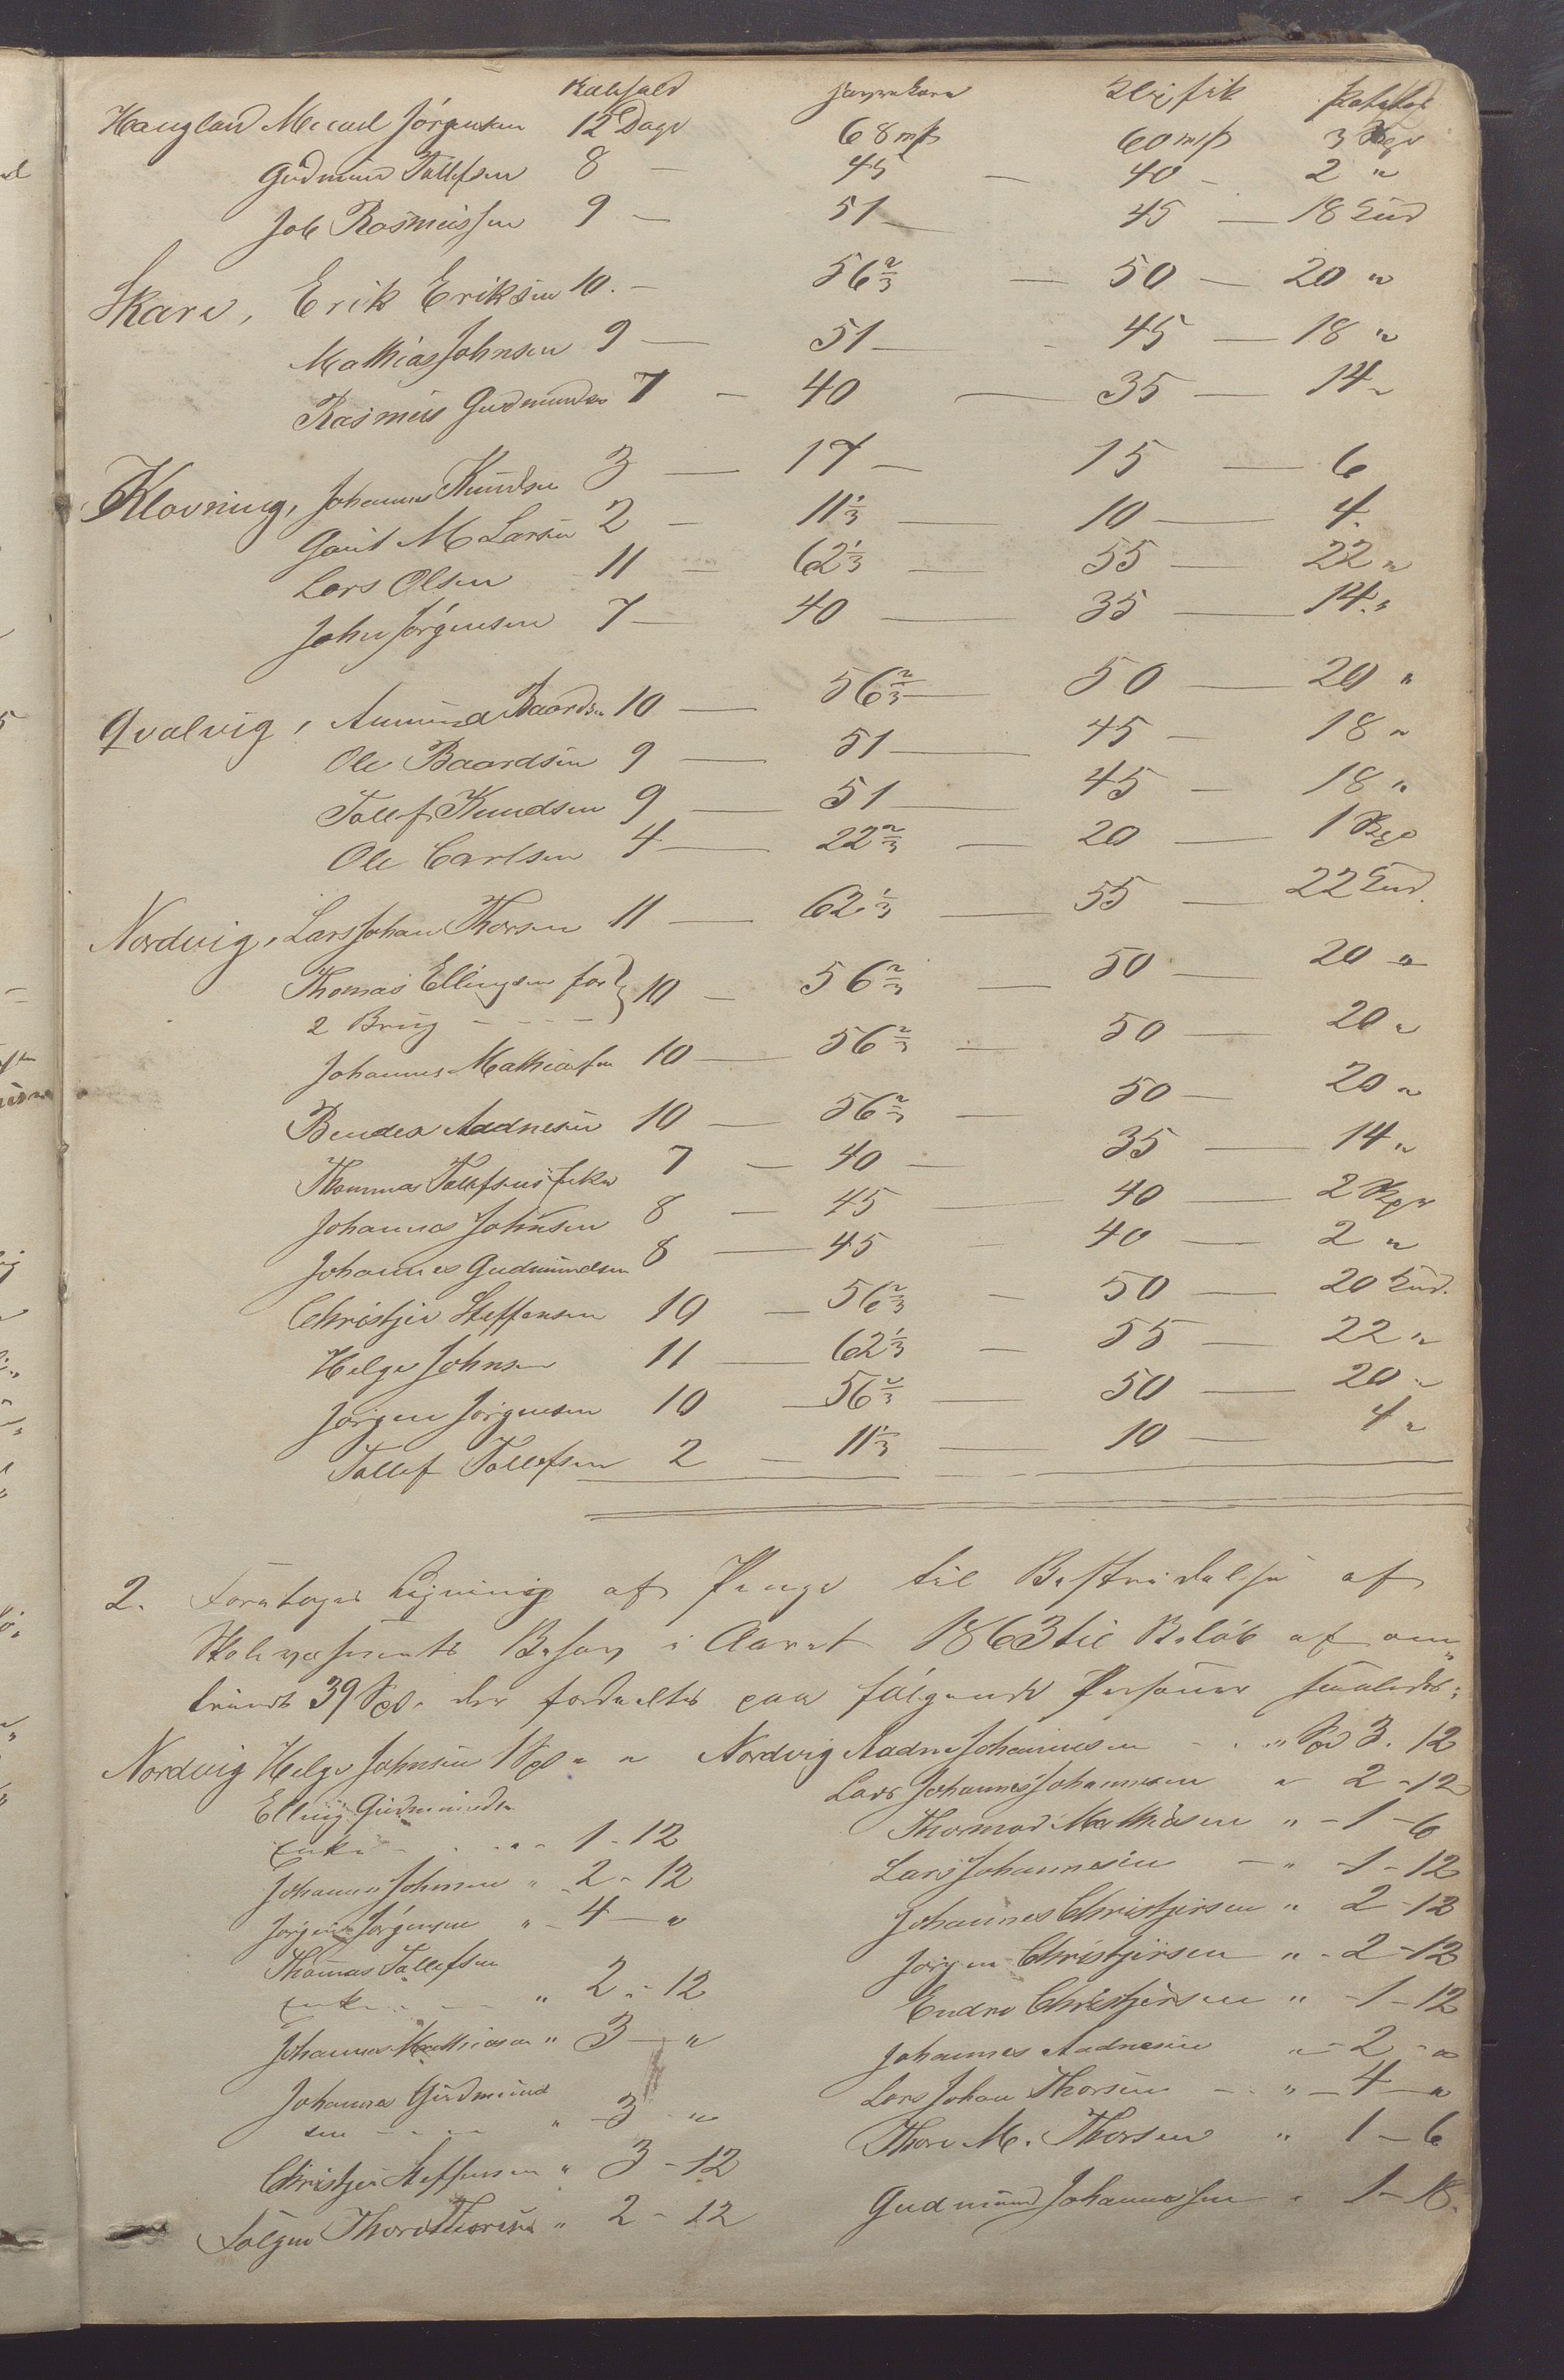 Kalfald
Haugland Micael Jörgensen 12 Dage 68 mk 60 mk 3 Skp
Gudmund Tollefsen 8 — 45 — 40 — 2 "
Job Rasmussen 9 — 51 — 45 — 18
Skare, Erik Eriksen 10. — 56 2/3 — 50 — 20 "
Mathias Johnsen 9 — 51 — 45 — 18 "
Rasmus Gudmundsen 7 — 40 — 35 — 14 "
Klovning, Johannes Knudsen 3 — 17 — 15 — 6
Gaut M Larsen 2 — 11 1/3 — 10 — 4.
Lars Olsen 11 — 62 1/3 — 55 — 22 "
John Jörgensen 7 — 40 — 35 — 14 "
Qvalvig, Baardsen 10 — 56 2/3 — 50 — 20 "
Ole Baardsen 9 — 51 — 45 — 18 "
Tollef Knudsen 9 — 51 — 45 — 18 "
Ole Carlsen 4 — 22 2/3 — 20 — 1 Skp
Nordvig, Lars Johan Thorsen 11 — 62 1/3 — 55 — 22
Thomas Ellingsen for } 10 — 56 2/3 — 50 — 20 "
2 Brug - - - -
Johannes Mathiasen 10 — 56 2/3 — 50 — 20 "
Aadnesen 10 — 56 2/3 — 50 — 20 "
Thomas Tollefsens Enke 7 — 40 — 35 — 14 "
Johannes Johnsen 8 — 45 — 40 — 2 Skp
Johannes Gudmundsen 8 — 45 — 40 — 2 "
Christjen Steffensen 10 — 56 2/3 — 50 — 20
Helge Johnsen 11 — 62 1/3 — 55 — 22 "
Jörgen Jörgensen 10 — 56 2/3 — 50 — 20 "
Tollef Tollefsen 2 — 11 1/3 — 10 — 4 "
2. Foretoges Ligning af Penge til Bestridelse af
Skolevæsenets Behov i Aaret 1863 til Beløb af om„
trindt 39 Spd. der fordeeltes paa følgende Personer saaledes:
Nordvig Helge Johnsen 1 Spd " " Nordvig Aadne Johannesen - " Spd 3. 12
Elling Gudmunds. Lars Johannes Johannesen " 2 - 12
Enke - - " - 1 - 12 Thormod Mathiasen " - 1 - 6
Johannes Johnsen " 2 - 12 Lars Johannesen — " - 1 - 12
Jörgen Jörgensen " - 4 — " Johannes Christjensen " 2 - 12
Thomas Tollefsen Jörgen Christjensen " - 2 - 12
Enke - - " 2 - 12 Endre Christjensen " - 1 - 12
Johannes Mathiasen " 3 — " Johannes Aadnesen " - 2 - "
Johannes Gudmund Lars Johan Thorsen — " - 4 — "
sen - - - " 3 " Thore M. Thorsen " 1 - 6
Christjen Steffensen " 3 - 12 Gudmund Johannesen " 1 - 18.
Thore Thorsen " 2 - 12